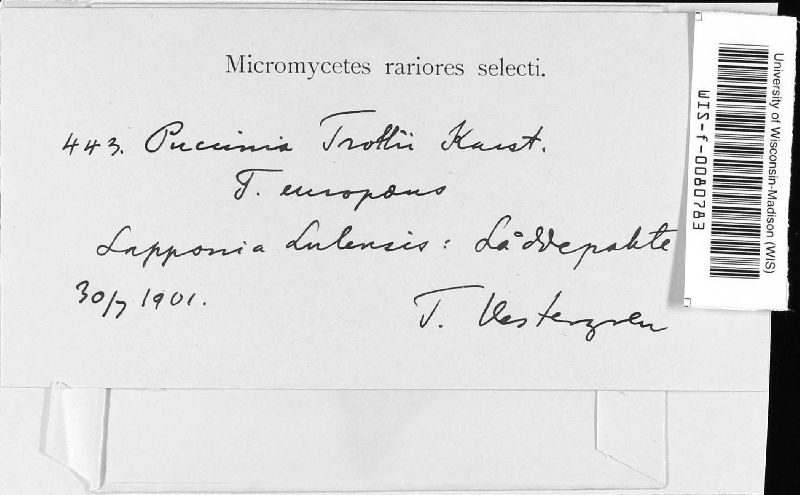 Micromycetes rariores selecti.
443. Puccinia Trollii Karst.
T. europæus
Lapponia Lulensis: Låddepakte
30/7 1901.
T. Vestergren
University of Wisconsin-Madison (WIS)
WIS-f-0080783